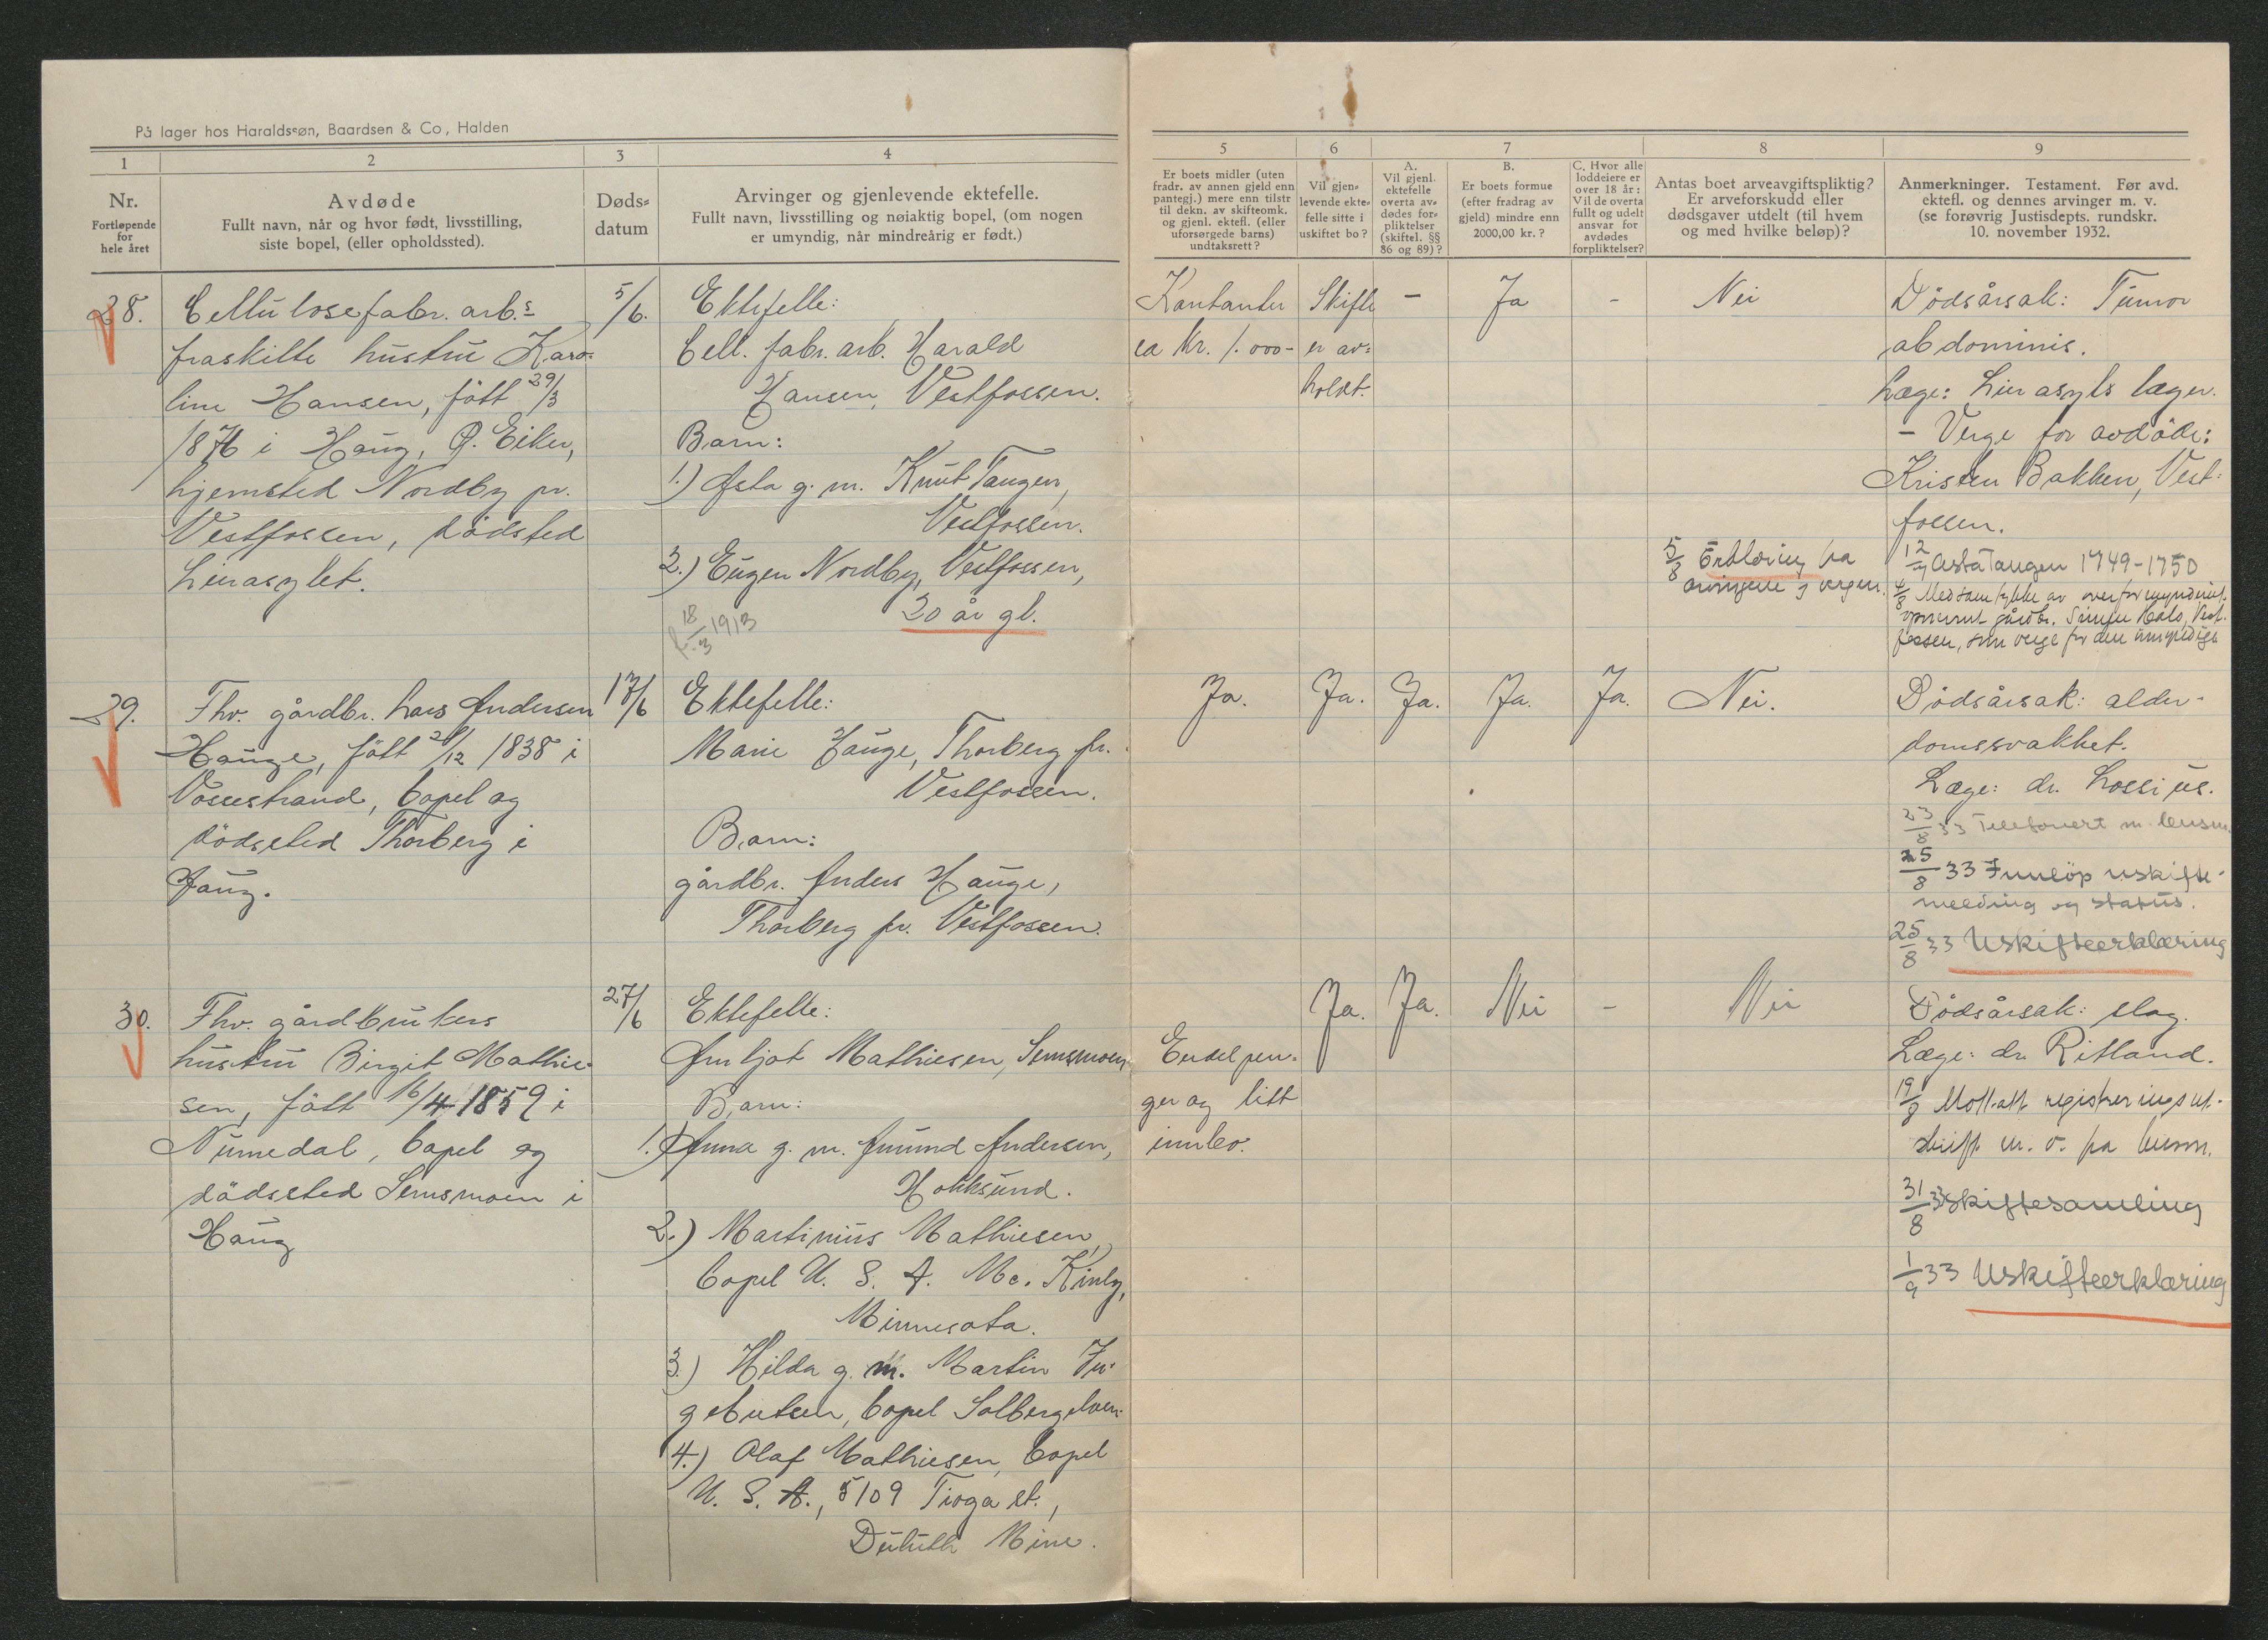 På lager hos Haraldssøn, Baardsen & Co, Halden
1
2
3
4
Nr.
Fortløpende
for
hele året
Avdøde
Fullt navn, når og hvor født, livsstilling,
siste bopel, (eller opholdssted).
Døds-
datum
Arvinger og gjenlevende ektefelle.
Fullt navn, livsstilling og nøiaktig bopel, (om nogen
er umyndig, når mindreårig er født.)
5
6
7
8
9
Er boets midler (uten
fradr. av annen gjeld enn
pantegj.) mere enn tilstr
til dekn. av skifteomk.
og gjenl. ektefl. (eller
uforsørgede barns)
undtaksrett?
Vil gjen-
levende ekte-
felle sitte i
uskiftet bo?
A.
Vil gjenl.
ektefelle
overta av-
dødes for-
pliktelser
(skiftel. §§
86 og 89)?
B.
Er boets formue
(efter fradrag av
gjeld) mindre enn
2000,00 kr.?
C. Hvor alle
loddeiere er
over 18 år:
Vil de overta
fullt og udelt
ansvar for
avdødes
forpliktelser?
Antas boet arveavgiftspliktig?
Er arveforskudd eller
dødsgaver utdelt (til hvem
og med hvilke beløp)?
Anmerkninger. Testament. Før avd.
ektefl. og dennes arvinger m. v.
(se forøvrig Justisdepts. rundskr.
10. november 1932.
28.
Cellulosefabr. arb.s
fraskilte hustru Karo-
line Hansen, født 29/3
1876 i Haug, Ø. Eiker,
hjemsted Nordby pr.
Vestfossen, dødsted
Lierasylet.
5/6.
Ektefelle:
Cell. fabr. arb. Harald
Hansen, Vestfossen.
Barn:
1.) Asta g. m. Knut Tangen,
Vestfossen.
2.) Eugen Nordby, Vestfossen,
20 år gl.
f. 18/3 1913
Kontanter
ca kr. 1.000-
Skifte
er av-
holdt.
-
Ja
-
Nei
5/8 Erklæring fra
arvingene
Dødsårsak: Tumor
abdominis.
Læge: Lierasyls læger.
- Verge for avdøde:
Kristen Bakken, Vest-
fossen.
12/7 Asta Tangen 1749-1750
4/8 Med samtykke av overformynderiet
gårdbr. Hals, Vest-
fossen, som verge for den umyndige
29.
Fhv. gårdbr. Lars Andersen
Hauge, født /12 1838 i
Vossestrand, bopel og
dødssted Thorberg i
Haug.
17/6
Ektefelle:
Marie Hauge, Thorberg pr.
Vestfossen.
Barn:
gårdbr. Anders Hauge,
Thorberg pr. Vestfossen.
Ja.
Ja.
Ja.
Ja.
Ja.
Nei.
Dødsårsak: alder-
domssvakhet.
Læge: dr. Lossius.
23/8 33 Telefonert m. lensm.
25/8 33 Innløp uskifte-
melding og status.
25/8 33 Uskifteerklæring
30.
Fhv. gårdbrukers
hustru Birgit Mathie-
sen, født 16/4 1859 i
Numedal, bopel og
dødssted Semsmoen i
Haug
27/6
Ektefelle:
Mathiesen, Semsmoen.
Barn:
1.) Anna g. m. Amund Andersen,
Hokksund.
2.) Martinius Mathiesen,
bopel U. S. A. Mc. Kinly,
Minnesota.
3.) Hilda g. m. Martin In-
gebretsen, bopel Solbergelven.
4.) Olaf Mathiesen, bopel
U. S. A., 5109 Tioga st.,
Duluth Minn.
Endel pen-
ger og litt
innbo.
Ja.
Ja.
Nei
-
Nei
Dødsårsak: slag.
Læge: dr. Ritland.
19/8 Mottatt registreringsut-
skrift m. v. fra lensm.
31/8 33 Skiftesamling
1/9 33 Uskifteerklæring